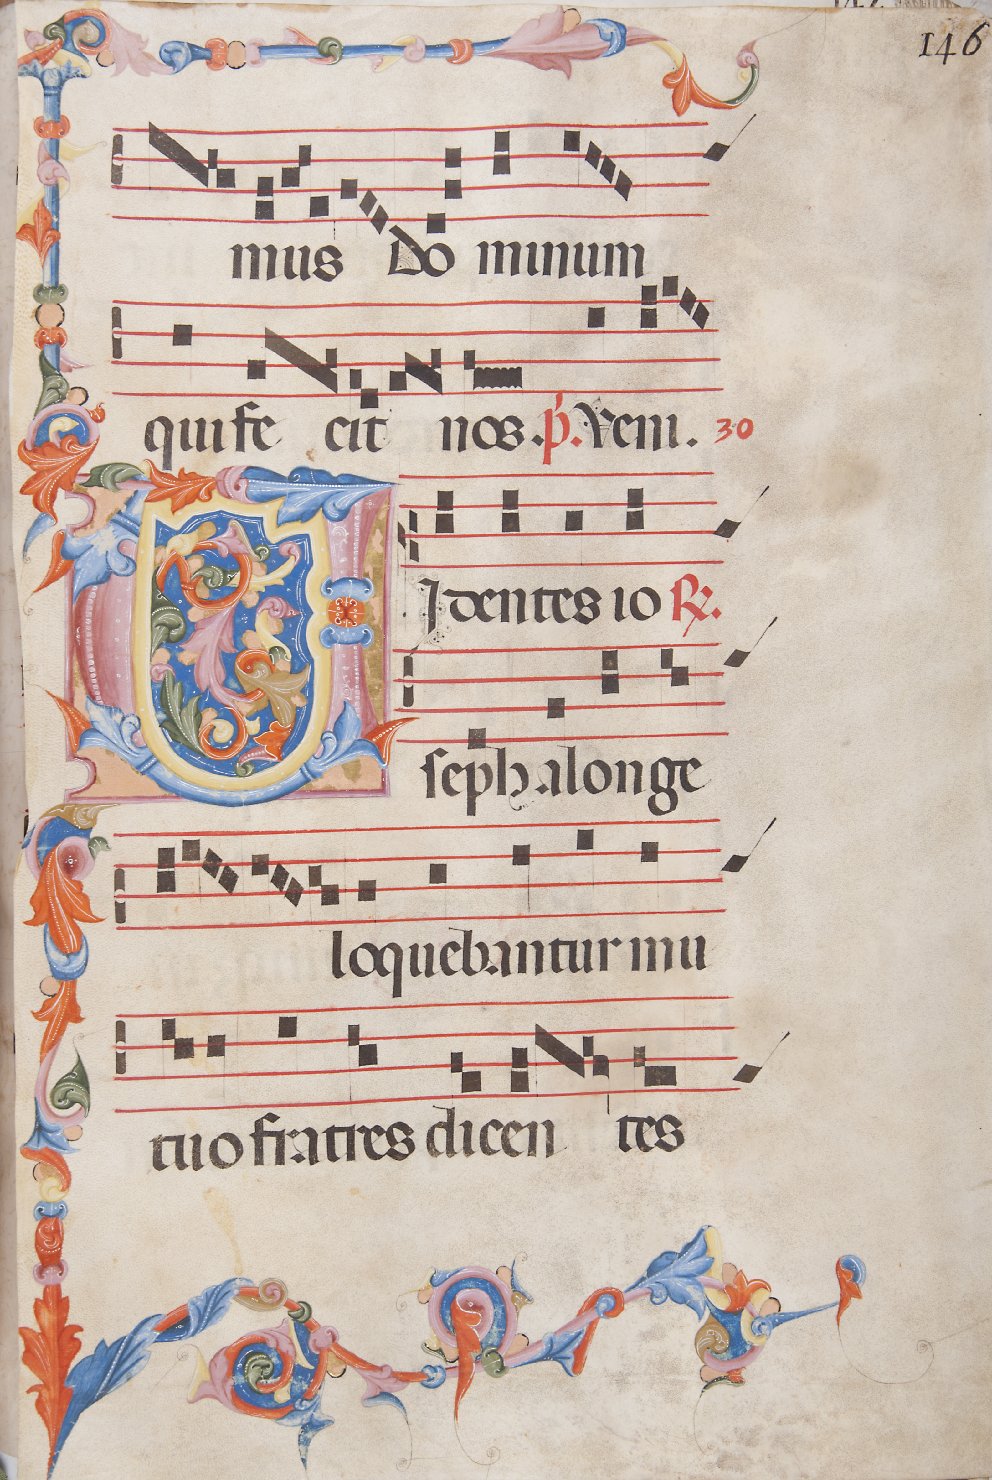 146
mus do minum
qui fe cit nos. p̃. Veni. 30
VIdentes io R̃.
seph a longe
loquebantur mu
tuo fratres dicen tes